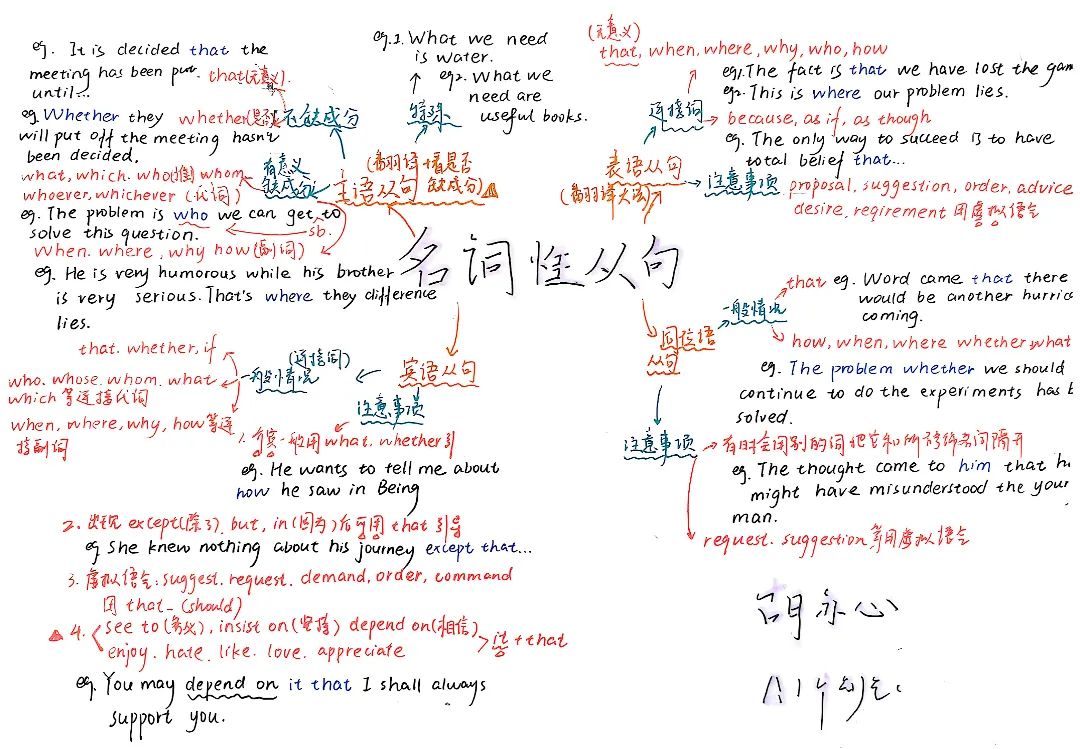 eg. It is decided that the
meeting has been put.
until...
that(无意义)
eg. Whether they
will put off the meeting hasn't
been decided.
whether(是否)
不缺成分
有意义
缺成分
what, which. who(谁) whom
whoever, whichever (代词)
eg. The problem is who we can get to
solve this question.
sb.
when. where, why how(副词)
eg. He is very humorous while his brother
is very serious. That's where they difference
lies.
主语从句
(翻译+看是否
缺成分)
特殊
eg.1. What we need
is water.
eg2. What we
need are
useful books.
名词性从句
表语从句
(翻译大语)
连接词
(无意义)
that, when, where, why, who, how
eg1. The fact is that we have lost the gam
eg2. This is where our problem lies.
because, as if, as though
eg. The only way to succeed is to have
total belief that...
注意事项
proposal, suggestion, order, advice
desire, reqirement 用虚拟语气
同位语
从句
一般情况
that
eg. Word came that there
would be another hurric
coming.
how, when, where whether, what
eg. The problem whether we should
continue to do the experiments has b
solved.
注意事项
有时会用别的词把它和所修饰名词隔开
eg. The thought came to him that h
might have misunderstood the your
man.
request. suggestion 等用虚拟语气
宾语从句
(连接词)
一般情况
that. whether, if
who. whose. whom. what
which 等连接代词
when, where, why, how 等连
接副词
注意事项
1. 介宾一般用 what. whether 引
eg. He wants to tell me about
how he saw in Being
2. 出现 except(除了). but, in(因为)后可用 that 引导
eg She knew nothing about his journey except that...
3. 虚拟语气: suggest. request. demand, order, command
用 that_ (should)
4. see to(务必), insist on(坚持) depend on(相信)
enjoy. hate. like. love. appreciate
it + that
eg. You may depend on it that I shall always
support you.
胡亦心